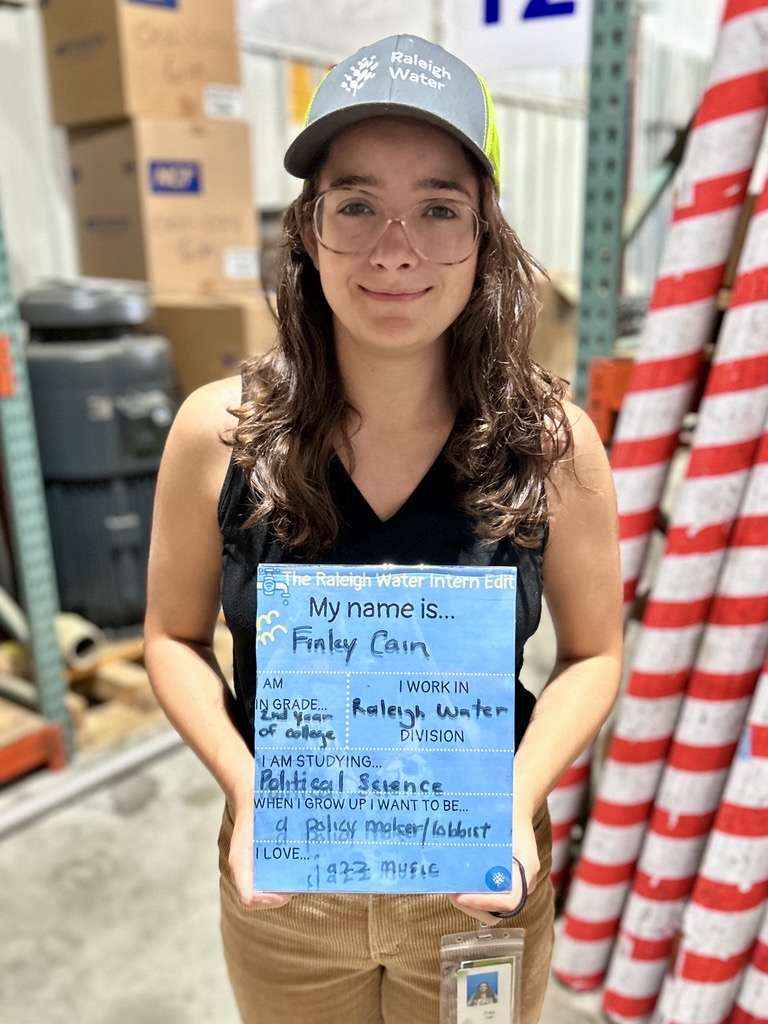 12
Raleigh
Water
NCF
The Raleigh Water Intern Edit
My name is...
Finley Cain
I AM
IN GRADE...
2nd year
of college
I WORK IN
Raleigh Water
DIVISION
I AM STUDYING...
Political Science
WHEN I GROW UP I WANT TO BE...
a policy maker/lobbist
I LOVE...
jazz music